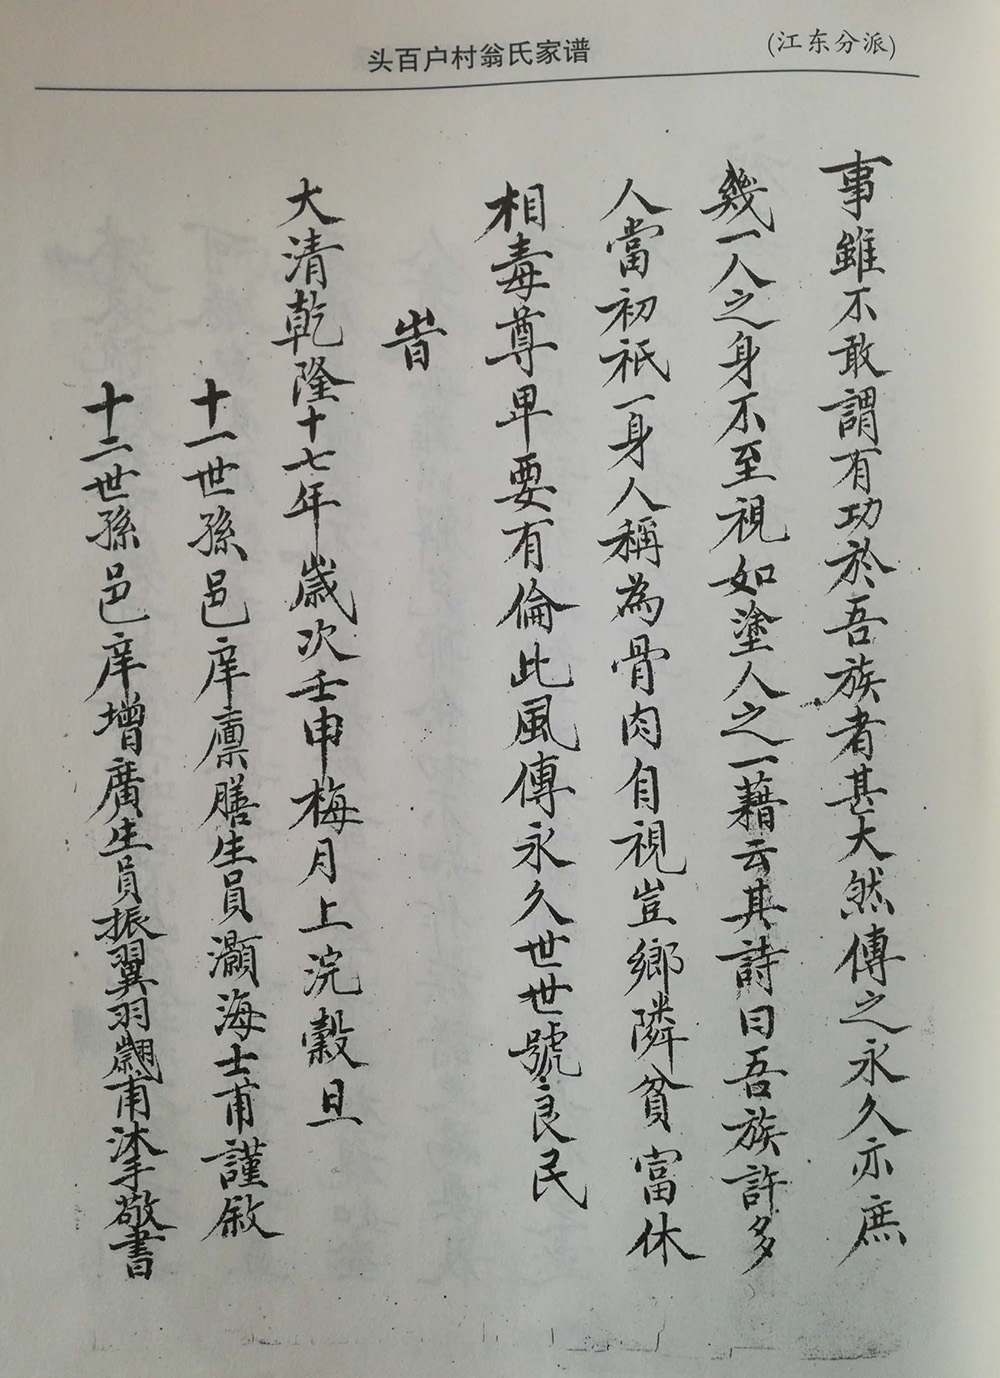 头百户村翁氏家谱
(江东分派)
事雖不敢謂有功於吾族者甚大然傳之永久亦庶
幾一人之身不至視如塗人之一藉云其詩曰吾族許多
人當初祇一身人稱為骨肉自視豈鄉隣貧富休
相毒尊卑要有倫此風傳永久世世號良民
旹
大清乾隆十七年歲次壬申梅月上浣穀旦
十一世孫邑庠廪膳生員灝海士甫謹敘
十二世孫邑庠增廣生員振翼羽翽甫沐手敬書